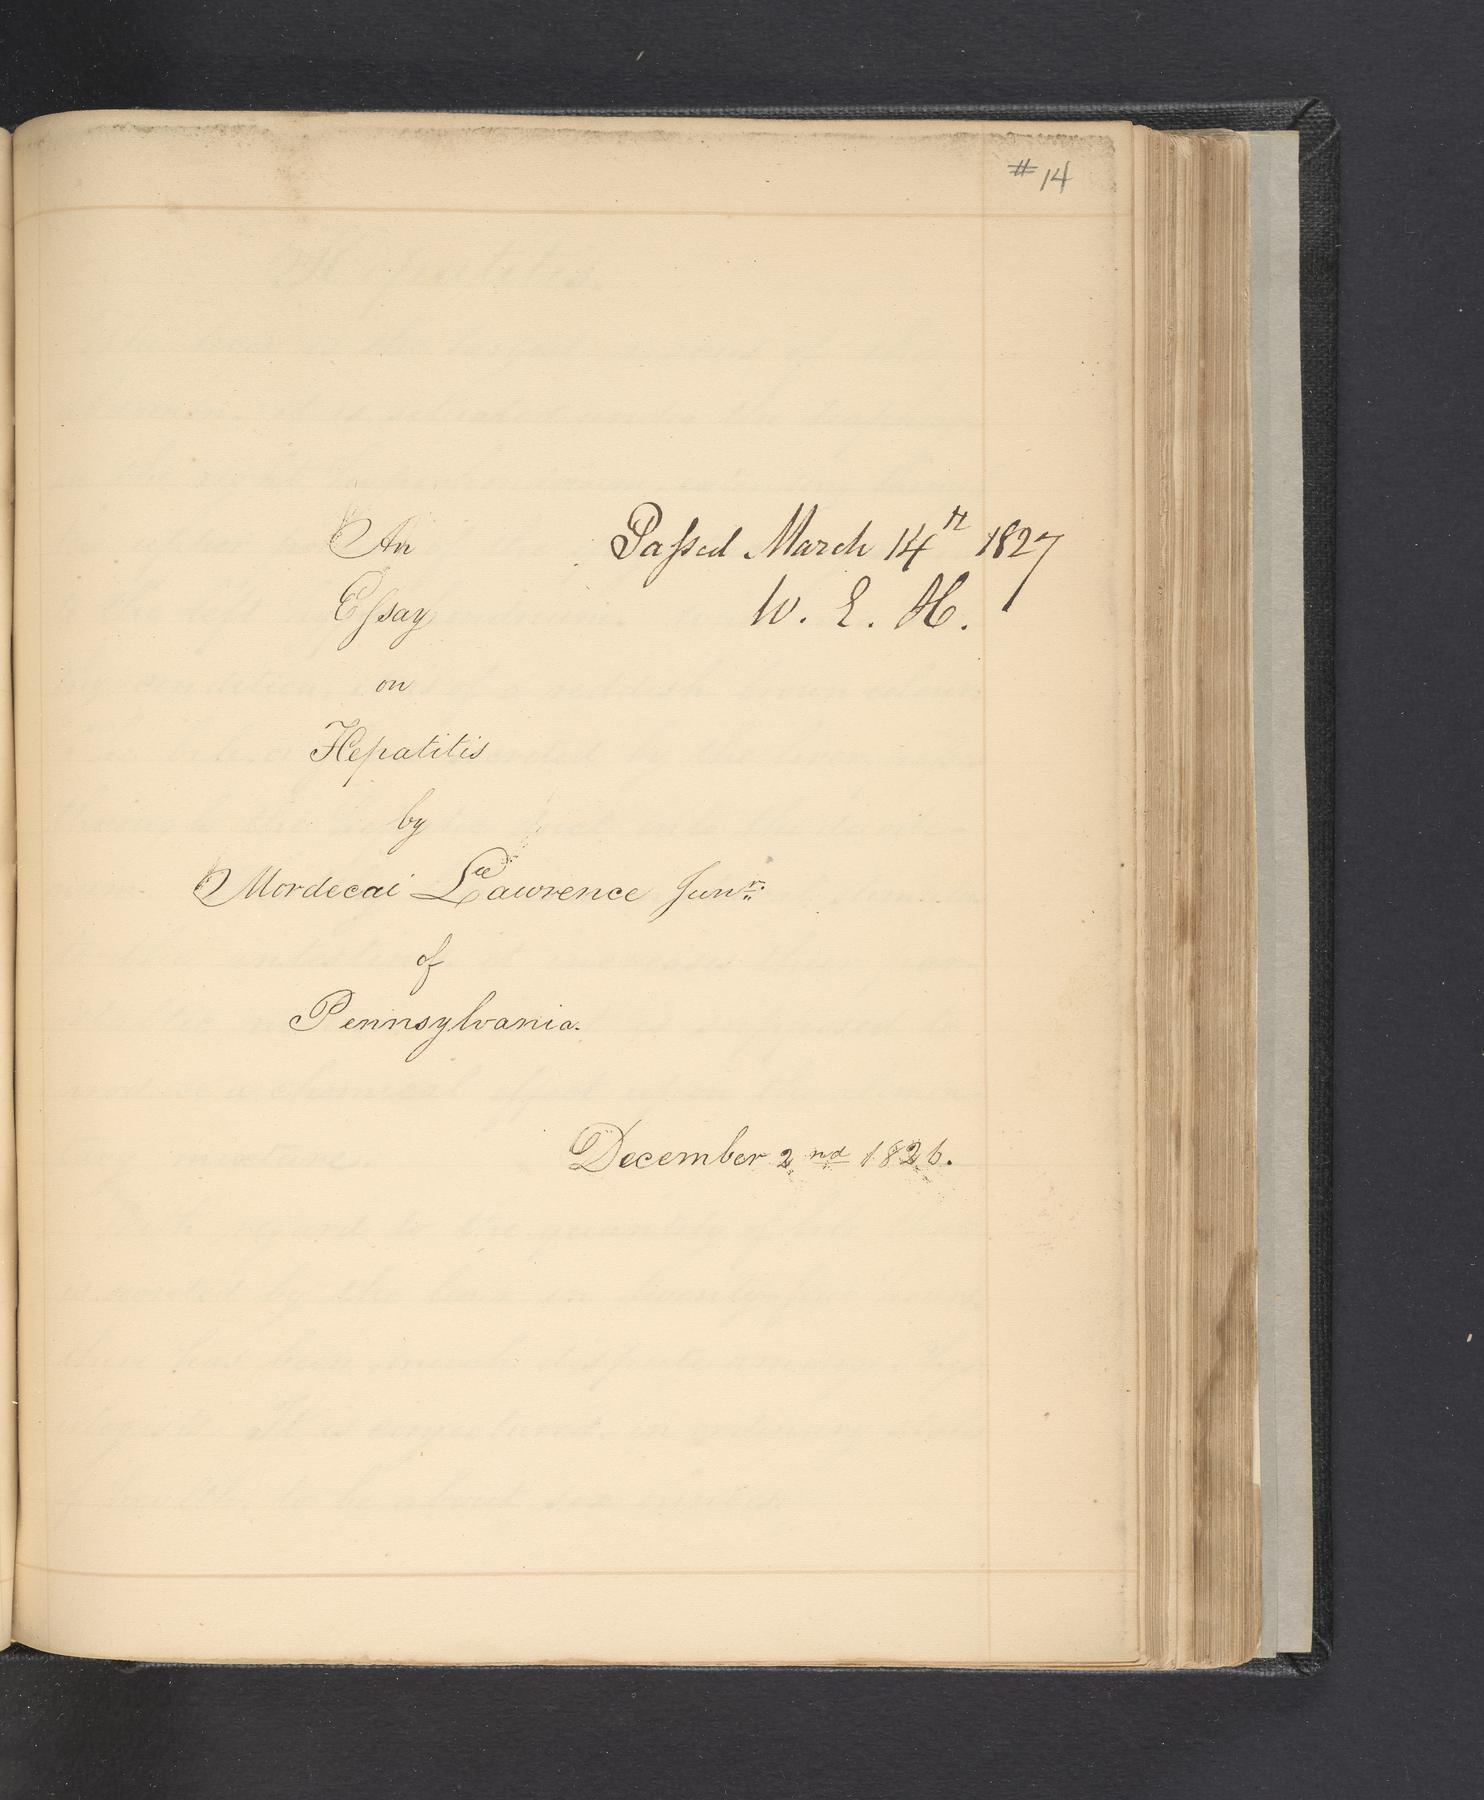 #14
An
Passed March 14th 1827
Essay
W. E. H.
on
Hepatitis
by
Mordecai Lawrence Junr.
of
Pennsylvania.
December 2nd 1826.